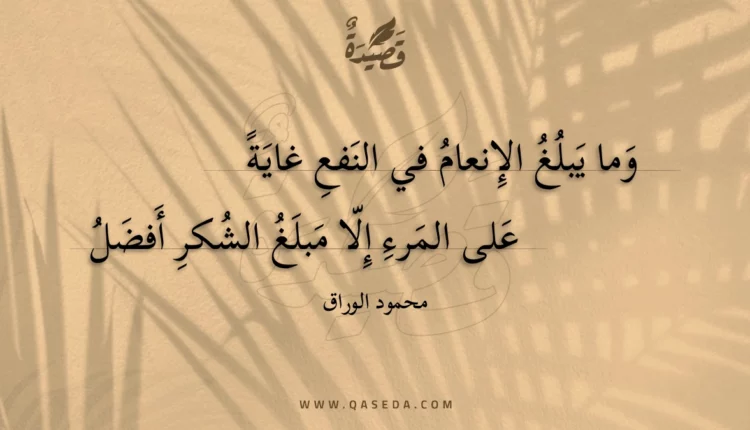 قَصِيْدَةٌ
وَما يَبلُغُ الإِنعامُ في النَفعِ غايَةً
عَلى المَرءِ إِلّا مَبلَغُ الشُكرِ أَفضَلُ
محمود الوراق
WWW.QASEDA.COM